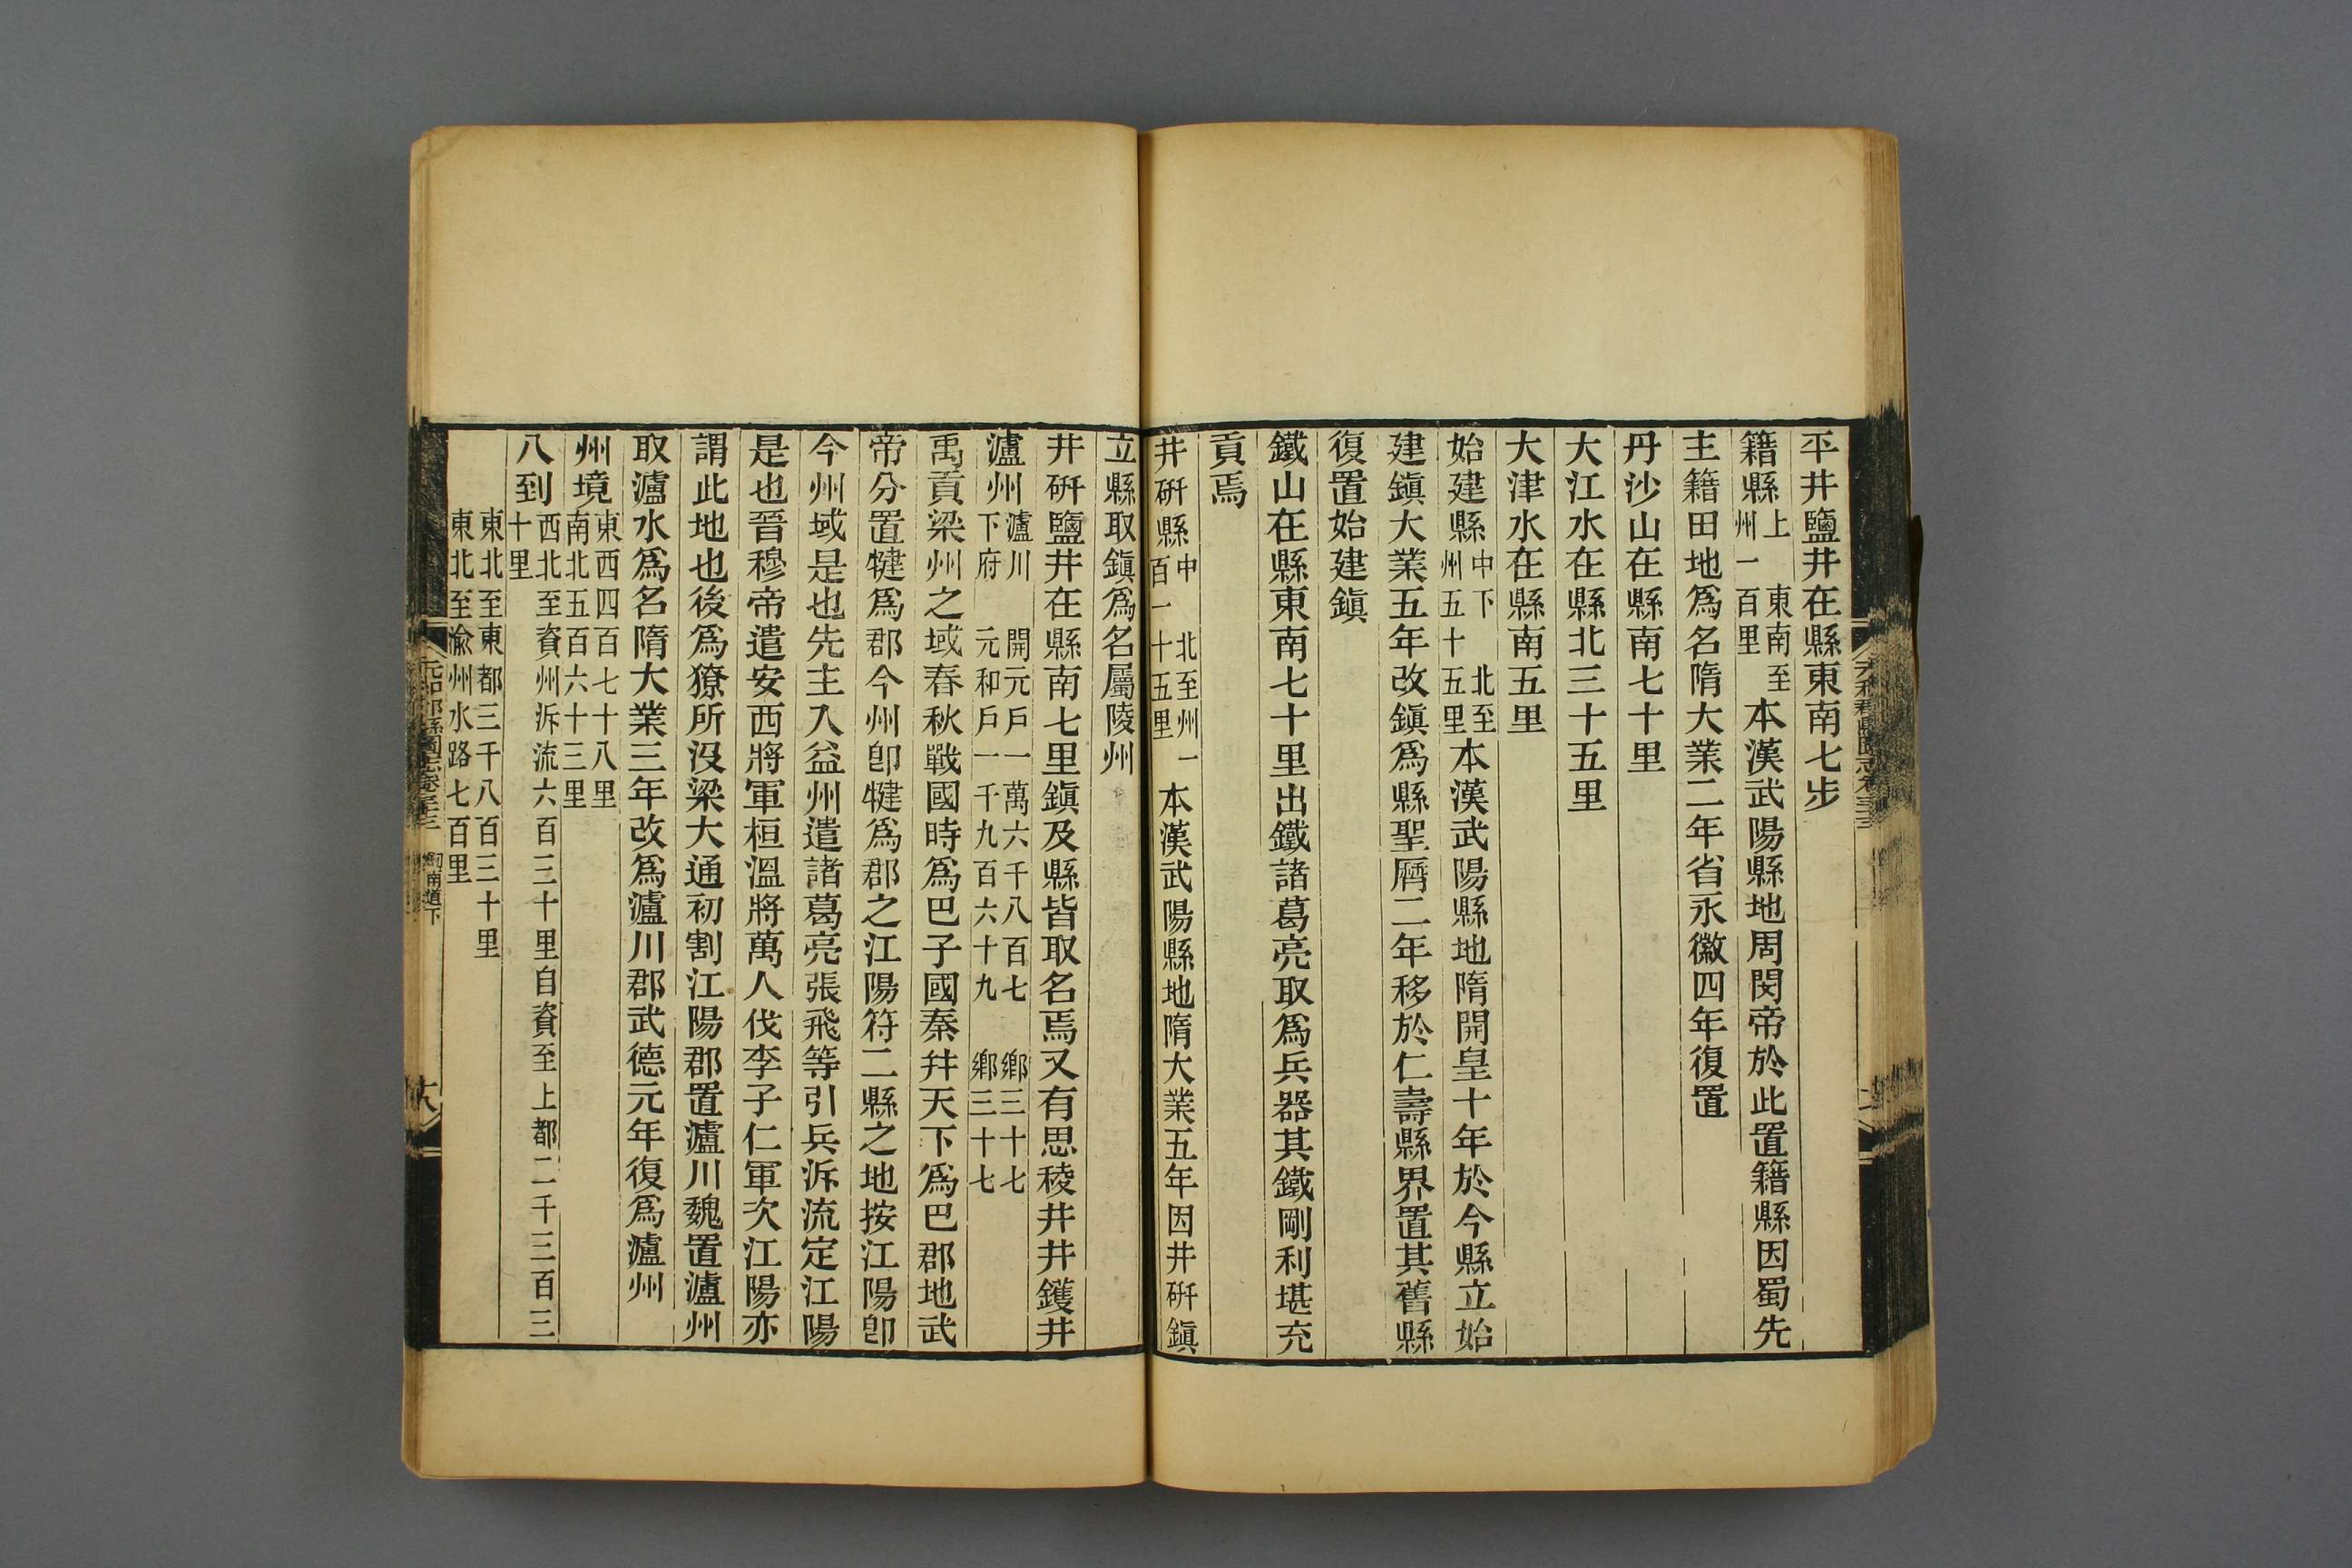 平井鹽井在縣東南七步
籍縣上東南至州一百里本漢武陽縣地周閔帝於此置籍縣因蜀先
主籍田地爲名隋大業二年省永徽四年復置
丹沙山在縣南七十里
大江水在縣北三十五里
大津水在縣南五里
始建縣中下北至州五十五里本漢武陽縣地隋開皇十年於今縣立始
建鎭大業五年改鎭爲縣聖曆二年移於仁壽縣界置其舊縣
復置始建鎭
鐵山在縣東南七十里出鐵諸葛亮取爲兵器其鐵剛利堪充
貢焉
井研縣中北至州一百一十五里本漢武陽縣地隋大業五年因井研鎭
立縣取鎭爲名屬陵州
井研鹽井在縣南七里鎭及縣皆取名焉又有思稜井井鑊井
瀘州瀘川下府開元戶一萬六千八百七鄉三十七元和戶一千九百六十九鄉三十七
禹貢梁州之域春秋戰國時爲巴子國秦幷天下爲巴郡地武
帝分置犍爲郡今州卽犍爲郡之江陽符二縣之地按江陽卽
今州域是也先主入益州遣諸葛亮張飛等引兵泝流定江陽
是也晉穆帝遣安西將軍桓溫將萬人伐李子仁軍次江陽亦
謂此地也後爲獠所沒梁大通初割江陽郡置瀘川魏置瀘州
取瀘水爲名隋大業三年改爲瀘川郡武德元年復爲瀘州
州境東西四百七十八里南北五百六十三里
八到西北至資州泝流六百三十里自資至上都二千三百三十里
東北至東都三千八百三十里
東北至渝州水路七百里
元和郡縣圖志卷三十三 劒南道下